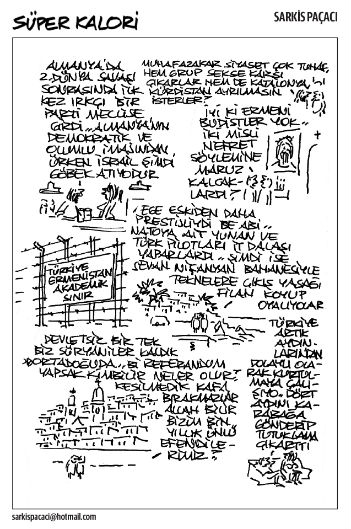 SÜPER KALORİ
SARKİS PAÇACI
ALMANYA'DA
2. DÜNYA SAVAŞI
SONRASINDA İLK
KEZ IRKÇI BİR
PARTİ MECLİSE
GİRDİ.. ALMANYA'NIN
DEMOKRATİK VE
OLUMLU İMAJINDAN
ÜRKEN İSRAİL ŞİMDİ
GÖBEK ATIYODUR
MUHAFAZAKAR SİYASET ÇOK TUHAF,
HEM GRUP SEKSE KARŞI
ÇIKARLAR HEM DE KATALONYA,
KÜRDİSTAN AYRILMASIN
İSTERLER?
İYİ Kİ ERMENİ
BUDİSTLER YOK..
İKİ MİSLİ
NEFRET
SÖYLEMİNE
MARUZ
KALCAK-
LARDI?
EGE ESKİDEN DAHA
PRESTİJLİYDİ BE ABİ..
NATOYA AİT YUNAN VE
TÜRK PİLOTLARI İT DALAŞI
YAPARLARDI.. ŞİMDİ İSE
SEVAN NİŞANYAN BAHANESİYLE
TEKNELERE ÇIKIŞ YASAĞI
FİLAN KOYUP
OYALIYOLAR
TÜRKİYE
ERMENİSTAN
AKADEMİK
SINIR
DEVLETSİZ BİR TEK
BİZ SÜRYANİLER KALDIK
ORTADOĞUDA.. Bİ REFERANDUM
YAPSAK KİMBİLİR NELER OLUR?
KESİLMEDİK KAFA
BIRAKMAZLAR
ALLAH BİLİR
BİZİM BİN
YILLIK ÜNLÜ
EFENDİLE-
RİMİZ?
TÜRKİYE
ARTIK
AYDIN-
LARINDAN
DOLAYLI OLA-
RAK KURTUL-
MAYA ÇALI-
ŞIYO.. DÖRT
AYDINI KA-
RABAĞA
GÖNDERİP
TUTUKLAMA
ÇIKARTTI
sarkispacaci@hotmail.com